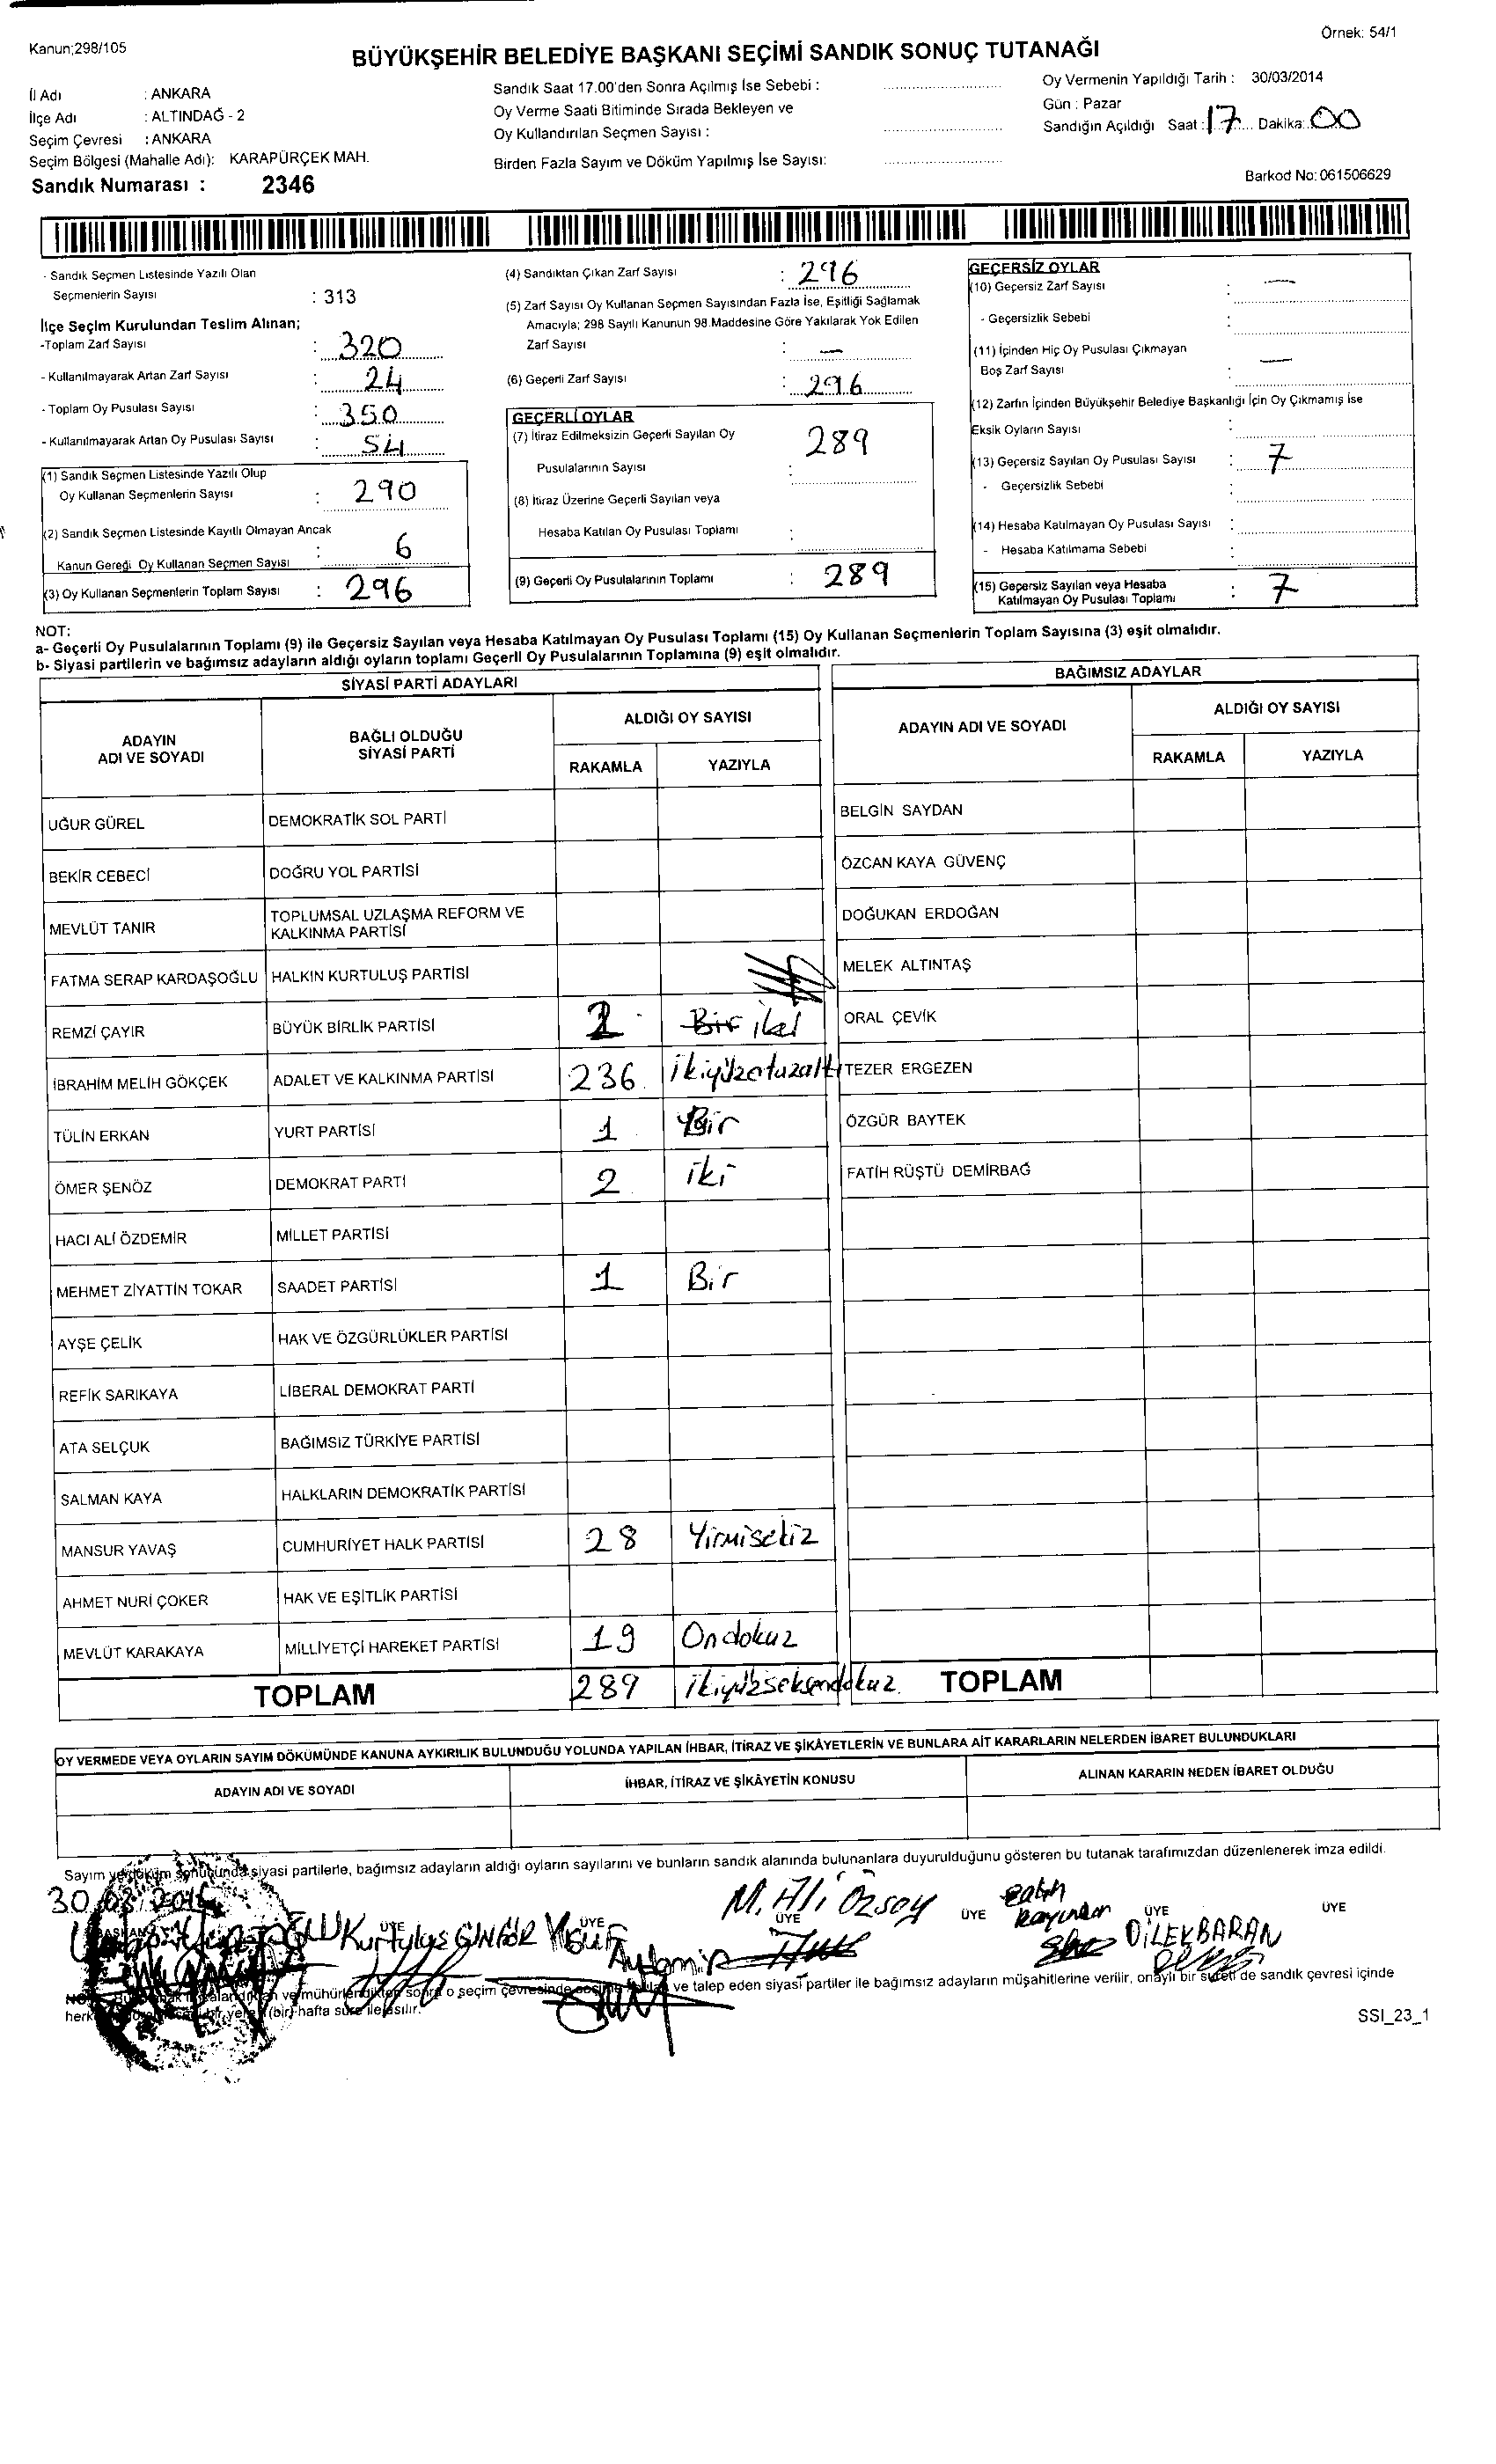 Kanun;298/105
Örnek: 54/1
BÜYÜKŞEHİR BELEDİYE BAŞKANI SEÇİMİ SANDIK SONUÇ TUTANAĞI
İl Adı : ANKARA
İlçe Adı : ALTINDAĞ - 2
Seçim Çevresi : ANKARA
Seçim Bölgesi (Mahalle Adı): KARAPÜRÇEK MAH.
Sandık Numarası : 2346
Sandık Saat 17.00'den Sonra Açılmış İse Sebebi :
Oy Verme Saati Bitiminde Sırada Bekleyen ve
Oy Kullandırılan Seçmen Sayısı :
Birden Fazla Sayım ve Döküm Yapılmış İse Sayısı:
Oy Vermenin Yapıldığı Tarih : 30/03/2014
Gün : Pazar
Sandığın Açıldığı Saat : 17 Dakika: 00
Barkod No: 061506629
- Sandık Seçmen Listesinde Yazılı Olan
Seçmenlerin Sayısı : 313
İlçe Seçim Kurulundan Teslim Alınan;
-Toplam Zarf Sayısı : 320
- Kullanılmayarak Artan Zarf Sayısı : 24
- Toplam Oy Pusulası Sayısı : 350
- Kullanılmayarak Artan Oy Pusulası Sayısı : 54
(1) Sandık Seçmen Listesinde Yazılı Olup
Oy Kullanan Seçmenlerin Sayısı : 290
(2) Sandık Seçmen Listesinde Kayıtlı Olmayan Ancak
Kanun Gereği Oy Kullanan Seçmen Sayısı : 6
(3) Oy Kullanan Seçmenlerin Toplam Sayısı : 296
(4) Sandıktan Çıkan Zarf Sayısı : 296
(5) Zarf Sayısı Oy Kullanan Seçmen Sayısından Fazla İse, Eşitliği Sağlamak
Amacıyla; 298 Sayılı Kanunun 98.Maddesine Göre Yakılarak Yok Edilen
Zarf Sayısı : —
(6) Geçerli Zarf Sayısı : 296
GEÇERLİ OYLAR
(7) İtiraz Edilmeksizin Geçerli Sayılan Oy
Pusulalarının Sayısı : 289
(8) İtiraz Üzerine Geçerli Sayılan veya
Hesaba Katılan Oy Pusulası Toplamı :
(9) Geçerli Oy Pusulalarının Toplamı : 289
GEÇERSİZ OYLAR
(10) Geçersiz Zarf Sayısı : —
- Geçersizlik Sebebi :
(11) İçinden Hiç Oy Pusulası Çıkmayan
Boş Zarf Sayısı : —
(12) Zarfın İçinden Büyükşehir Belediye Başkanlığı İçin Oy Çıkmamış ise
Eksik Oyların Sayısı :
(13) Geçersiz Sayılan Oy Pusulası Sayısı : 7
- Geçersizlik Sebebi :
(14) Hesaba Katılmayan Oy Pusulası Sayısı :
- Hesaba Katılmama Sebebi :
(15) Geçersiz Sayılan veya Hesaba
Katılmayan Oy Pusulası Toplamı : 7
NOT:
a- Geçerli Oy Pusulalarının Toplamı (9) ile Geçersiz Sayılan veya Hesaba Katılmayan Oy Pusulası Toplamı (15) Oy Kullanan Seçmenlerin Toplam Sayısına (3) eşit olmalıdır.
b- Siyasi partilerin ve bağımsız adayların aldığı oyların toplamı Geçerli Oy Pusulalarının Toplamına (9) eşit olmalıdır.
SİYASİ PARTİ ADAYLARI
BAĞIMSIZ ADAYLAR
ADAYIN ADI VE SOYADI
BAĞLI OLDUĞU SİYASİ PARTİ
ALDIĞI OY SAYISI
RAKAMLA YAZIYLA
ADAYIN ADI VE SOYADI
ALDIĞI OY SAYISI
RAKAMLA YAZIYLA
UĞUR GÜREL DEMOKRATİK SOL PARTİ BELGİN SAYDAN
BEKİR CEBECİ DOĞRU YOL PARTİSİ ÖZCAN KAYA GÜVENÇ
MEVLÜT TANIR TOPLUMSAL UZLAŞMA REFORM VE KALKINMA PARTİSİ DOĞUKAN ERDOĞAN
FATMA SERAP KARDAŞOĞLU HALKIN KURTULUŞ PARTİSİ MELEK ALTINTAŞ
REMZİ ÇAYIR BÜYÜK BİRLİK PARTİSİ 2 Bir iki ORAL ÇEVİK
İBRAHİM MELİH GÖKÇEK ADALET VE KALKINMA PARTİSİ 236 ikiyüzotuzaltı TEZER ERGEZEN
TÜLİN ERKAN YURT PARTİSİ 1 Bir ÖZGÜR BAYTEK
ÖMER ŞENÖZ DEMOKRAT PARTİ 2 iki FATİH RÜŞTÜ DEMİRBAĞ
HACI ALİ ÖZDEMİR MİLLET PARTİSİ
MEHMET ZİYATTİN TOKAR SAADET PARTİSİ 1 Bir
AYŞE ÇELİK HAK VE ÖZGÜRLÜKLER PARTİSİ
REFİK SARIKAYA LİBERAL DEMOKRAT PARTİ
ATA SELÇUK BAĞIMSIZ TÜRKİYE PARTİSİ
SALMAN KAYA HALKLARIN DEMOKRATİK PARTİSİ
MANSUR YAVAŞ CUMHURİYET HALK PARTİSİ 28 Yirmisekiz
AHMET NURİ ÇOKER HAK VE EŞİTLİK PARTİSİ
MEVLÜT KARAKAYA MİLLİYETÇİ HAREKET PARTİSİ 19 Ondokuz
TOPLAM 289 ikiyüzseksendokuz TOPLAM
OY VERMEDE VEYA OYLARIN SAYIM DÖKÜMÜNDE KANUNA AYKIRILIK BULUNDUĞU YOLUNDA YAPILAN İHBAR, İTİRAZ VE ŞİKÂYETLERİN VE BUNLARA AİT KARARLARIN NELERDEN İBARET BULUNDUKLARI
ADAYIN ADI VE SOYADI İHBAR, İTİRAZ VE ŞİKÂYETİN KONUSU ALINAN KARARIN NEDEN İBARET OLDUĞU
Sayım ve döküm sonucunda siyasi partilerle, bağımsız adayların aldığı oyların sayılarını ve bunların sandık alanında bulunanlara duyurulduğunu gösteren bu tutanak tarafımızdan düzenlenerek imza edildi.
30.03.2014
BAŞKAN ÜYE ÜYE ÜYE ÜYE ÜYE ÜYE
Kurtuluş GÜNGÖR Yusuf Aydemir M. Ali Özsoy DİLEK BARAN
ve mühürlendikten sonra o seçim çevresinde ve talep eden siyasi partiler ile bağımsız adayların müşahitlerine verilir, onaylı bir sureti de sandık çevresi içinde
(bir) hafta süre ile asılır.
SSI_23_1